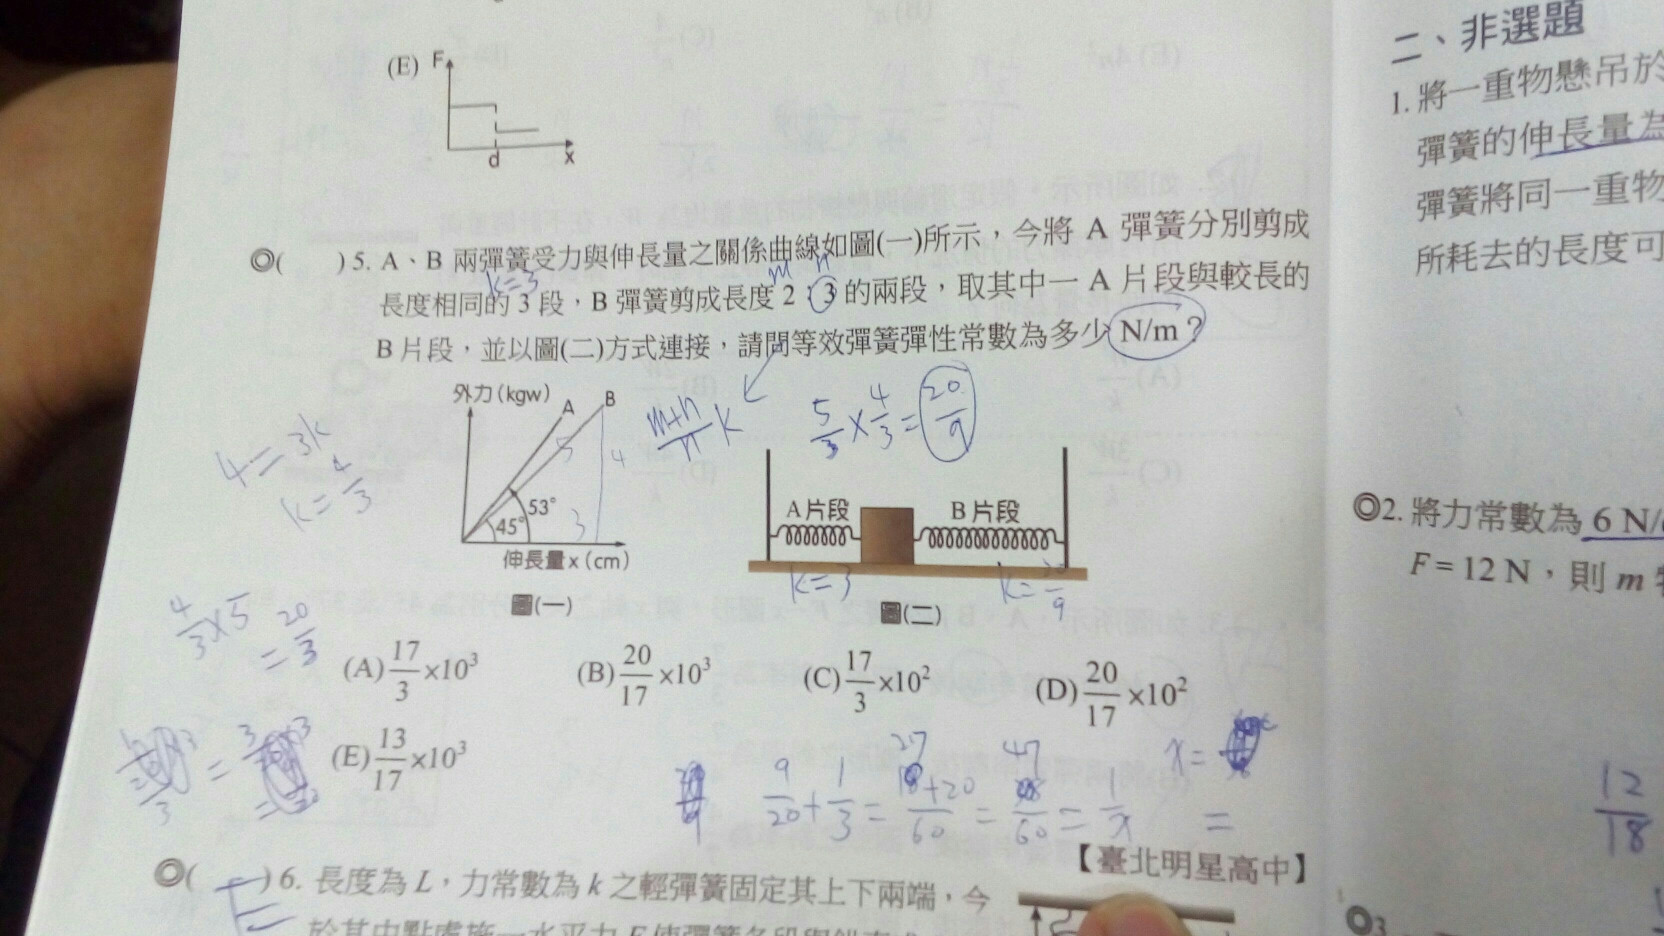 (E) F
d x
◎( )5. A、B 兩彈簧受力與伸長量之關係曲線如圖(一)所示，今將 A 彈簧分別剪成
k=3 m n
長度相同的 3 段，B 彈簧剪成長度 2：3 的兩段，取其中一 A 片段與較長的
B 片段，並以圖(二)方式連接，請問等效彈簧彈性常數為多少 N/m？
外力(kgw) A B
5 4 3
53°
45°
伸長量 x (cm)
圖(一)
4=3k
k=4/3
m+n/n k
5/3×4/3=20/9
A 片段 B 片段
k=3 k=20/9
圖(二)
4/3×5=20/3
(A) 17/3 ×10³ (B) 20/17 ×10³ (C) 17/3 ×10² (D) 20/17 ×10²
(E) 13/17 ×10³
9/20+1/3=27+20/60=47/60=1/x
x=
=
【臺北明星高中】
◎( E )6. 長度為 L，力常數為 k 之輕彈簧固定其上下兩端，今
二、非選題
1. 將一重物懸吊於
彈簧的伸長量為
彈簧將同一重物
所耗去的長度可
◎2. 將力常數為 6 N/
F = 12 N，則 m
12/18
◎3